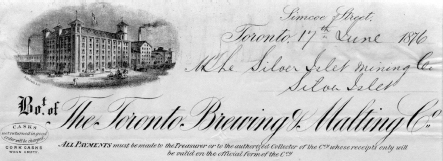 Simcoe Street,
Toronto, 17th June 1876
The Silver Islet Mining Co
Silver Islet
Bot. of The Toronto Brewing & Malting Co.
CASKS
CORN CASKS
ALL PAYMENTS must be made to the Treasurer or to the authorized Collector of the Coy whose receipts only will
be valid on the official form of the Coy